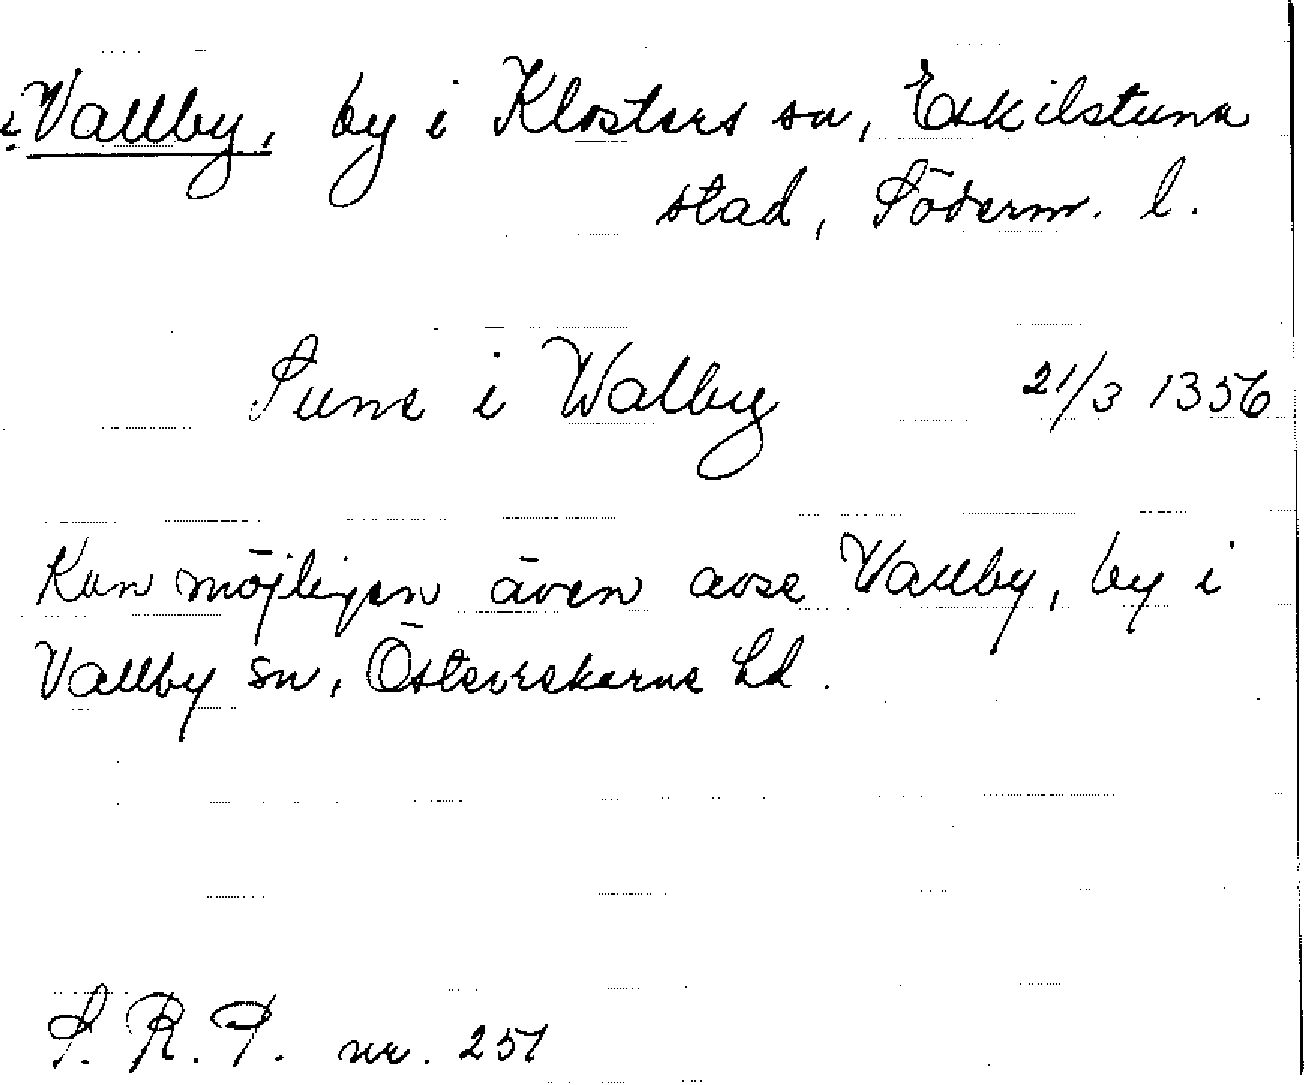 Vallby, by i Klosters sn, Eskilstuna
stad, Söderm. l.
Sune i Walby 21/3 1356
Kan möjligen även avse Vallby, by i
Vallby sn, Österrekarne hd.
S. R. P. nr. 251